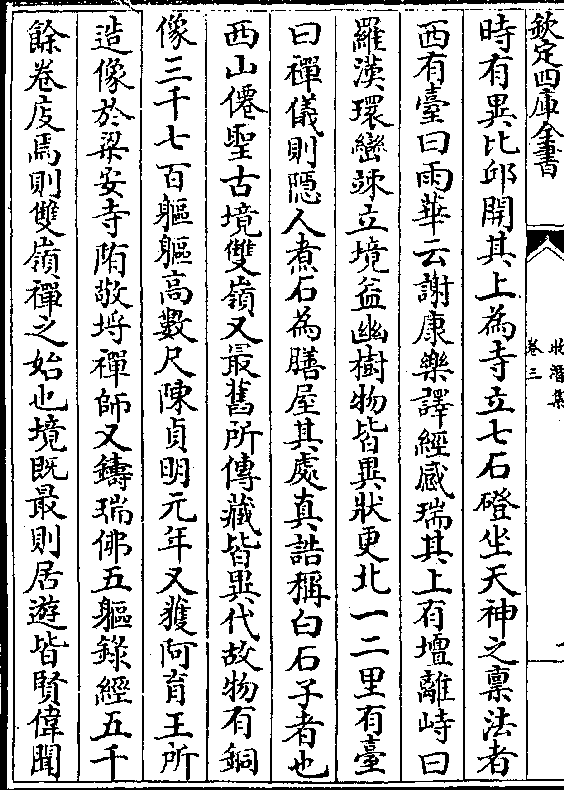 欽定四庫全書
牧潛集
卷三
時有異比邱開其上為寺立七石磴坐天神之禀法者
西有臺曰雨華云謝康樂譯經感瑞其上有壇離峙曰
羅漢環巒竦立境益幽樹物皆異狀更北一二里有臺
曰禪儀則隠人煮石為膳屋其處真誥稱白石子者也
西山僊聖古境雙嶺又最舊所傳藏皆異代故物有銅
像三千七百軀軀高數尺陳貞明元年又獲阿育王所
造像於梁安寺陏敬垺禪師又鑄瑞佛五軀錄經五千
餘卷庋焉則雙嶺禪之始也境既最則居遊皆賢偉聞